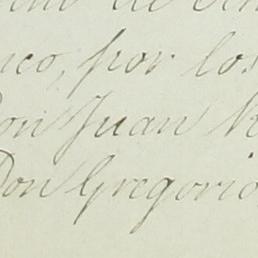 de
por los
Don Juan
Don Gregorio